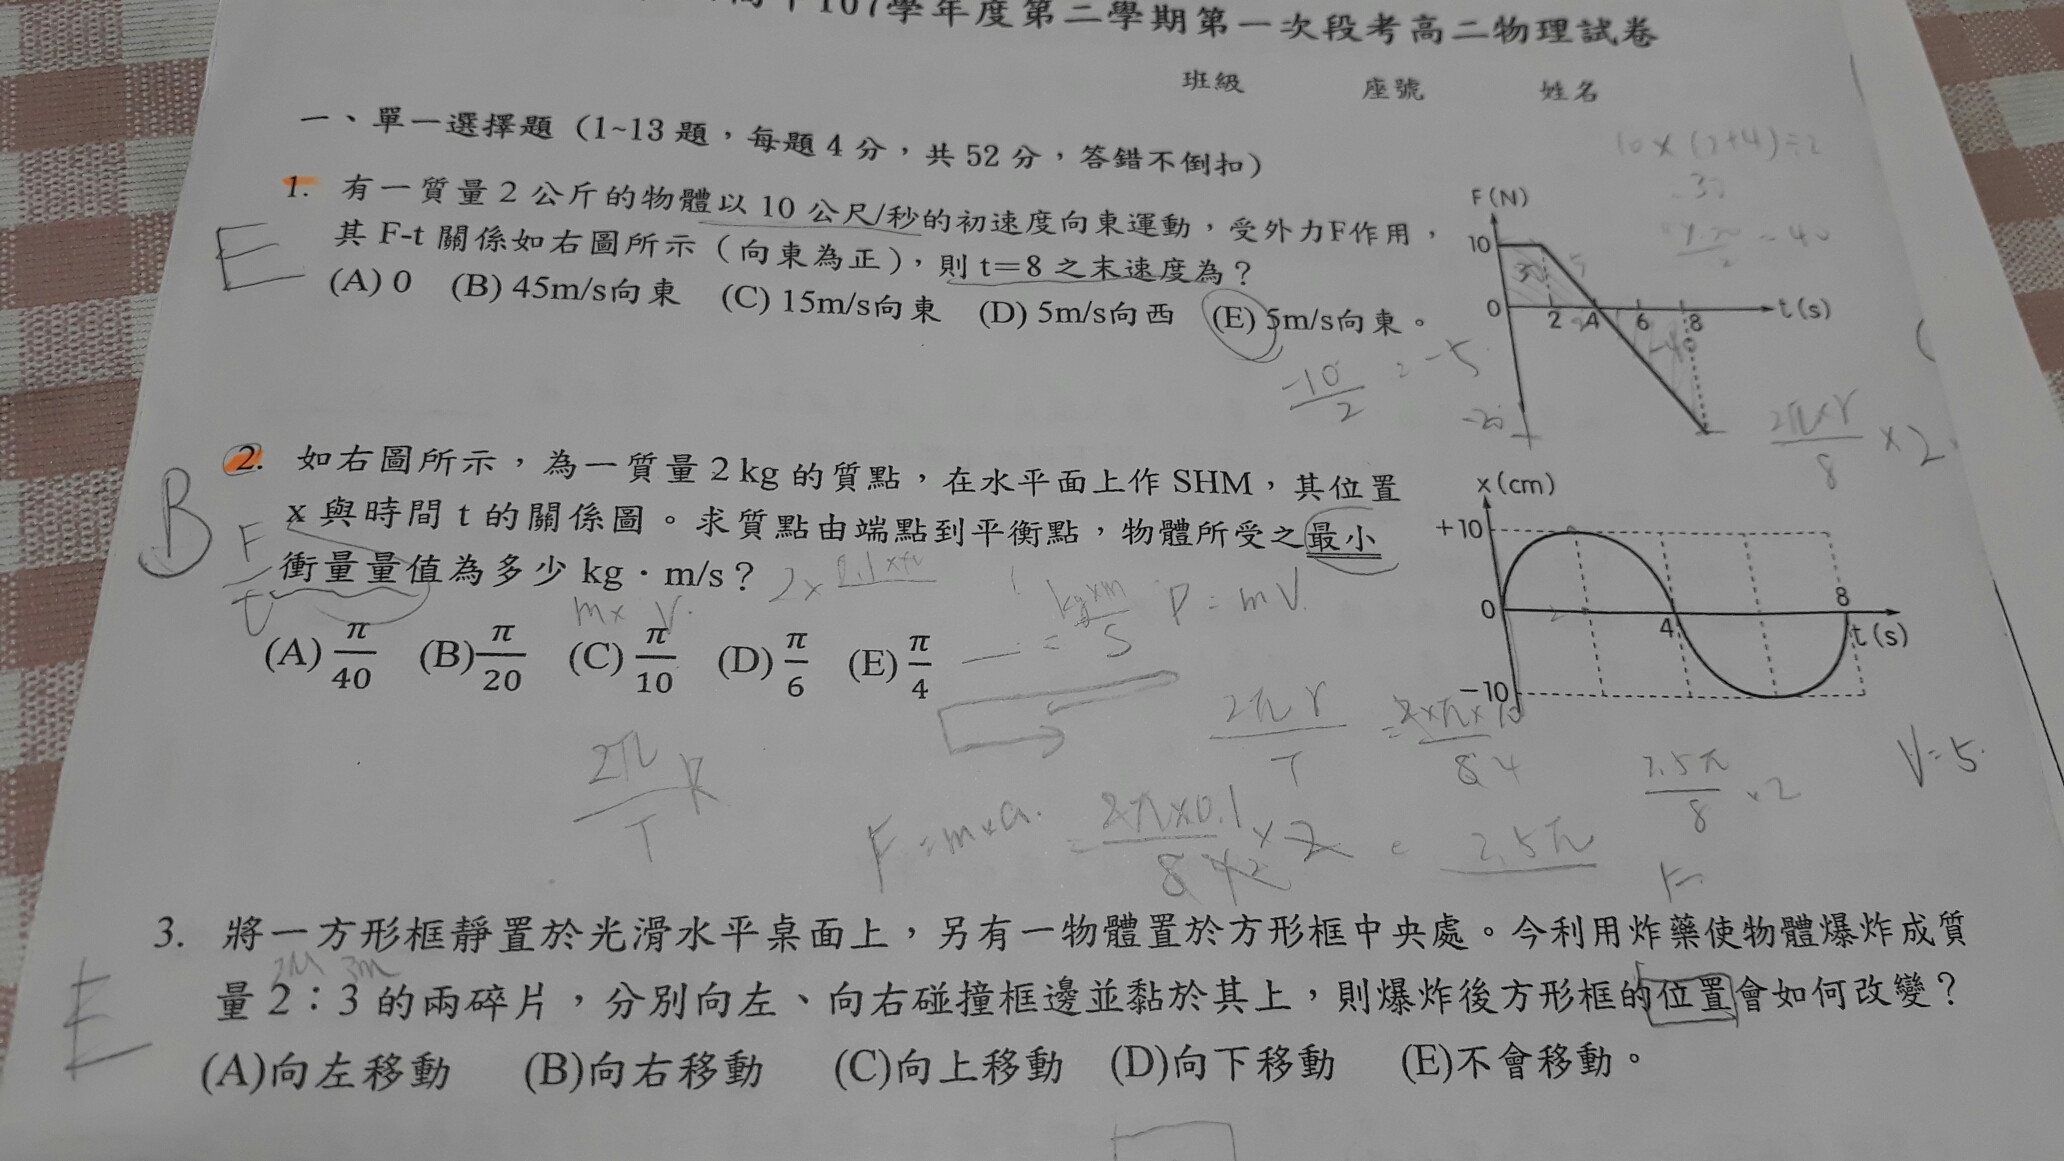 107學年度第二學期第一次段考高二物理試卷
班級 座號 姓名
一、單一選擇題(1~13題,每題4分,共52分,答錯不倒扣)
1. 有一質量2公斤的物體以10公尺/秒的初速度向東運動,受外力F作用,
其F-t關係如右圖所示(向東為正),則t=8之末速度為?
(A) 0 (B) 45m/s向東 (C) 15m/s向東 (D) 5m/s向西 (E) 5m/s向東。
E
10×(2+4)÷2
F(N)
10
0
2 4 6 8 t(s)
-20
30
-10/2 = -5
2π×r/8 ×2
2. 如右圖所示,為一質量2 kg的質點,在水平面上作SHM,其位置
x與時間t的關係圖。求質點由端點到平衡點,物體所受之最小
衝量量值為多少kg・m/s?
(A) π/40 (B) π/20 (C) π/10 (D) π/6 (E) π/4
B
F/t
m× V
kg×m/S
P=mV
x(cm)
+10
0
4
8
t(s)
-10
2π/T R
2πr/T = 2×π×10/8 4
F=m×a = 2π×0.1/8 ×2 = 2.5π
2.5π/8 ×2
V=5
3. 將一方形框靜置於光滑水平桌面上,另有一物體置於方形框中央處。今利用炸藥使物體爆炸成質
2M 3m
量2:3的兩碎片,分別向左、向右碰撞框邊並黏於其上,則爆炸後方形框的位置會如何改變?
(A)向左移動 (B)向右移動 (C)向上移動 (D)向下移動 (E)不會移動。
E